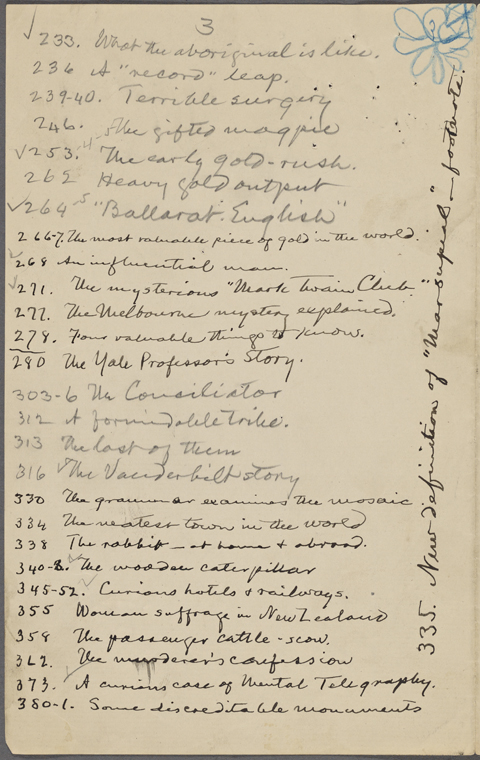 3
233. What the aboriginal is like.
236 A "record" leap.
239-40. Terrible surgery
246. The gifted magpie
253.-4-5 The early gold-rush.
262 Heavy gold output
264-5 "Ballarat English"
266-7. The most valuable piece of gold in the world.
268 An influential man.
271. The mysterious "Mark Twain Club."
277. The Melbourne mystery explained.
278. Four valuable things to know.
280 The Yale Professor's Story.
303-6 The Consiliator
312 A formidable tribe.
313 The last of them
316 The Vanderbilt story
330 The grammar examines the mosaic.
334 The neatest town in the world
338 The rabbit – at home & abroad.
340-8. The wooden caterpillar
345-52. Curious hotels & railways.
355 Woman suffrage in New Zealand
358 The passenger cattle-scow.
362. The murderer's confession
373. A curious case of Mental Telegraphy.
380-1. Some discreditable monuments
335. New definition of "Marsupial" – footnote.